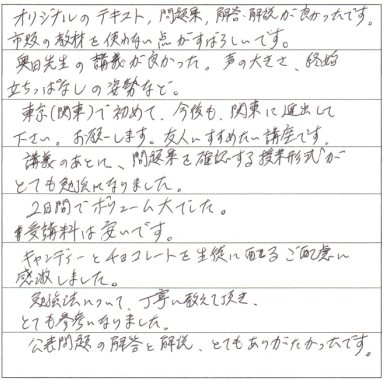 オリジナルのテキスト,問題集,解答・解説が良かったです。
市販の教材を使わない点がすばらしいです。
奥田先生の講義が良かった。声の大きさ、終始
立ちっぱなしの姿勢など。
東京(関東)で初めて、今後も、関東に進出して
下さい。お願いします。友人にすすめたい講座です。
講義のあとに、問題集を確認する授業形式が
とても勉強になりました。
2日間でボリューム大でした。
受講料は安いです。
キャンディーとチョコレートを生徒に配るご配慮に
感激しました。
勉強法について、丁寧に教えて頂き、
とても参考になりました。
公表問題の解答と解説、とてもありがたかったです。